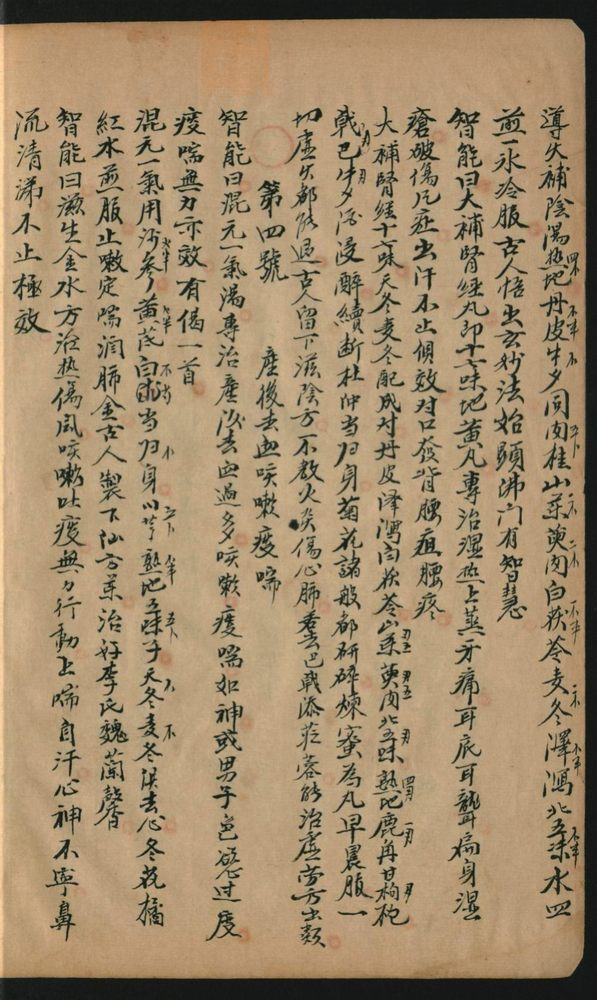 導火補陰湯熟地丹皮牛夕同肉桂山茱萸肉白茯苓麦冬澤瀉北五味水四
煎一水冷服古人悟出玄妙法始顕佛门有智慧
智能曰大補腎經丸即十六味地黃丸專治湿热上蒸牙痛耳底耳聾痛身湿
瘡破傷凡症出汗不止傾效对口發背腰疽腰疼
大補腎經十六味天冬麦冬配成对丹皮泽瀉白茯苓山茱萸肉北五味熟地鹿角甘枸杞
戟巴牛夕酒浸醉續断杜仲当归身菊花諸般都研碎煉蜜為丸早晨服一
切虛火都能退古人留下滋陰方不教火炎傷心肺去巴戟添苁蓉能治虛劳方出類
第四號 産後去血咳嗽痰喘
智能曰混元一氣湯專治産後去血過多咳嗽痰喘如神或男子色慾过度
痰喘無力亦效有偈一首
混元一氣用沙参黄芪白术当归身川芎熟地五味子天冬麦冬俱去心冬花橘
紅水煎服止嗽定喘潤肺金古人製下仙方茱治好李氏魏蘭馨
智能曰滋生金水方治热傷风咳嗽吐痰無力行動上喘自汗心神不寧鼻
流清涕不止極效